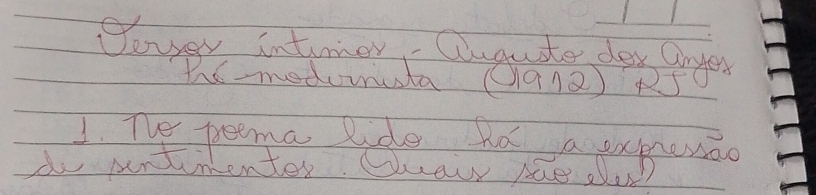 Versos íntimos - Augusto dos Anjos
Pré-modernista (1912) RJ
1. No poema lido há a expressão
de sentimentos. Quais são eles?